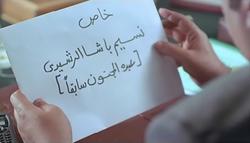 خاص
نسيم باشا الرشيدى
[عبده الجنون سابقاً]